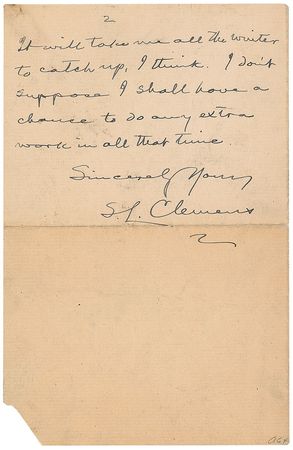 2
It will take me all the winter
to catch up, I think. I don't
suppose I shall have a
chance to do any extra
work in all that time.
Sincerely Yours
S. L. Clemens